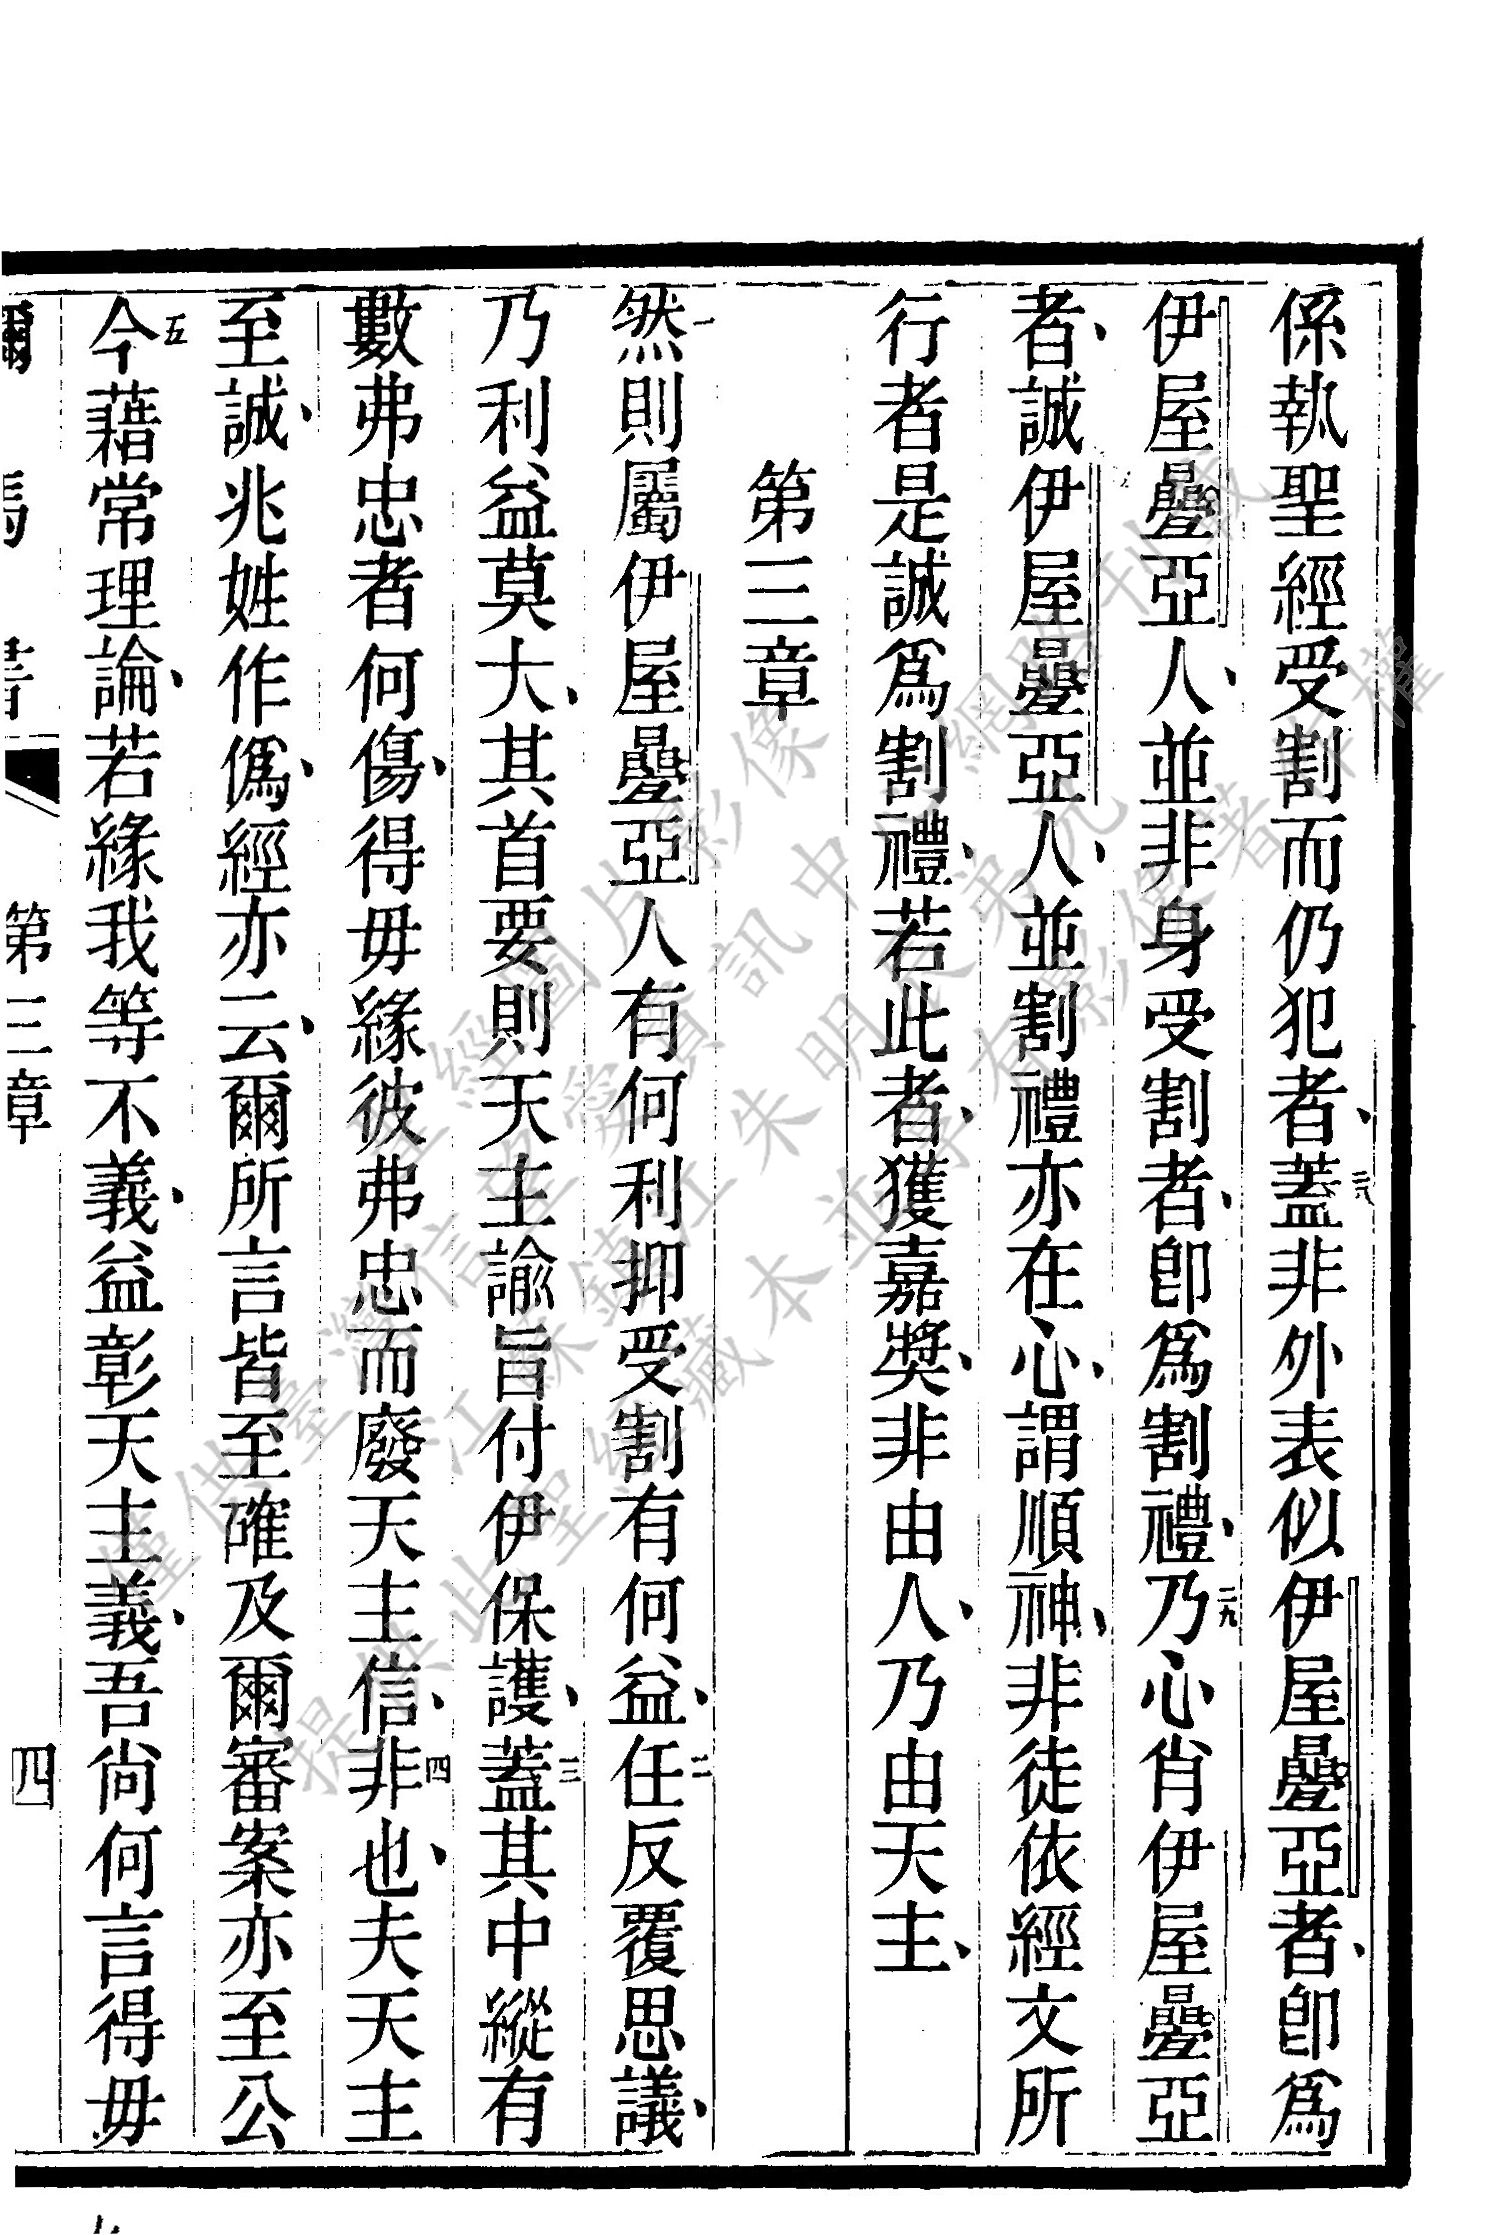 係執聖經受割而仍犯者、二八蓋非外表似伊屋疊亞者、卽爲
伊屋疊亞人、並非身受割者、卽爲割禮、二九乃心肖伊屋疊亞
者、誠伊屋疊亞人、並割禮亦在心、謂順神、非徒依經文所
行者是誠爲割禮、若此者、獲嘉獎、非由人、乃由天主、
第三章
一然則屬伊屋疊亞人有何利抑受割有何益、二任反覆思議、
乃利益莫大、其首要則天主諭旨付伊保護、三蓋其中縱有
數弗忠者何傷、得毋緣彼弗忠而廢天主信、四非也、夫天主
至誠、兆姓作僞、經亦云、爾所言皆至確及爾審案亦至公
五今藉常理論、若緣我等不義、益彰天主義、吾尙何言得毋
爾 馬 書 第三章 四
僅供臺灣信望愛資訊中心網路刊載
聖經圖片影像
江蘇鎮江朱明大弟兄
提供此聖經藏本並享有影像著作權